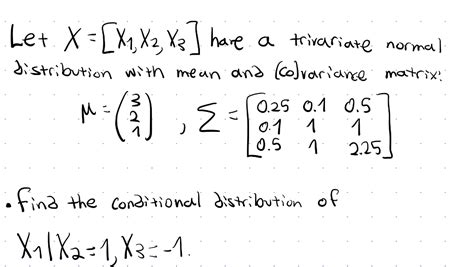 Let X = [X₁, X₂, X₃] have a trivariate normal
distribution with mean and (co)variance matrix:
μ = (3 2 1), Σ = [0.25 0.1 0.5
0.1 1 1
0.5 1 2.25]
• Find the conditional distribution of
X₁|X₂=1, X₃=-1.